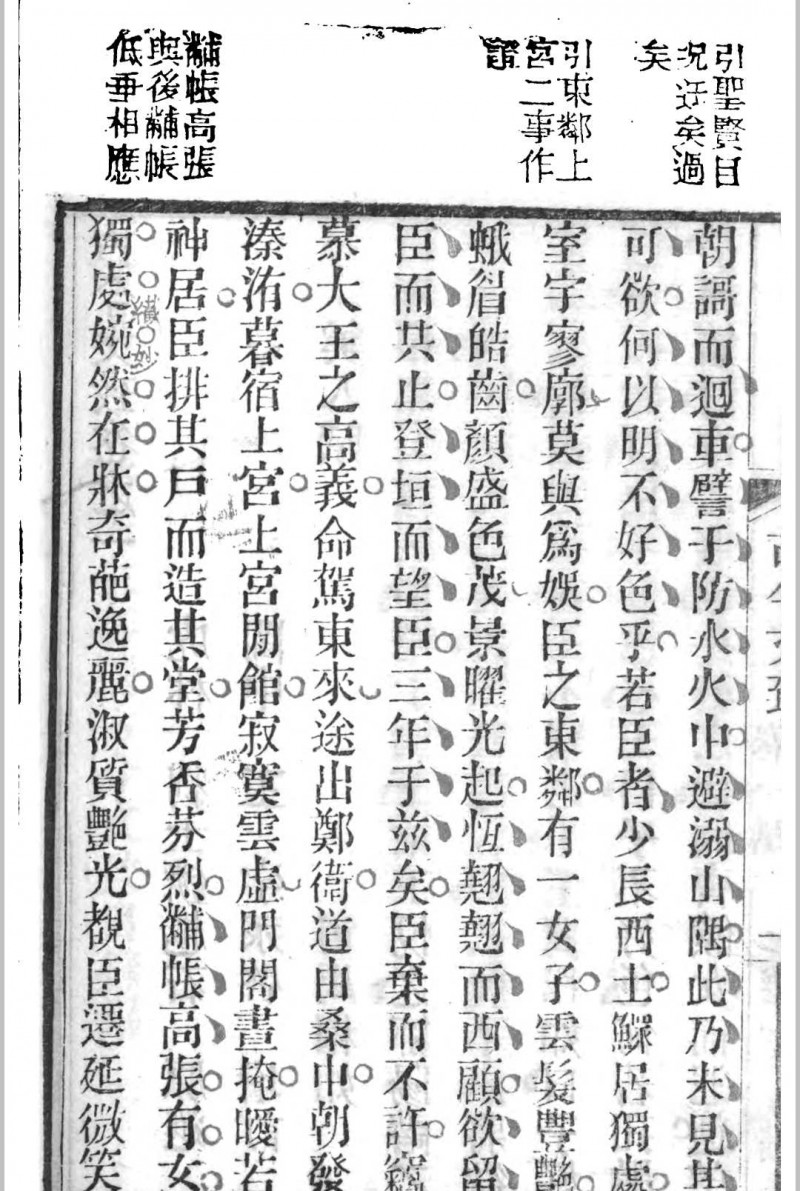 引聖賢自
況迂矣過
矣
引東鄰上
宮二事作
證
黼帳高張
與後黼帳
低垂相應
朝謌而迴車譬于防水火中避溺山隅此乃未見其
可欲何以明不好色乎若臣者少長西土鰥居獨處
室宇寥廓莫與爲娛臣之東鄰有一女子雲髮豐豔
蛾眉皓齒顏盛色茂景曜光起恆翹翹而西顧欲留
臣而共止登垣而望臣三年于兹矣臣棄而不許竊
慕大王之高義命駕東來途出鄭衛道由桑中朝發
溱洧暮宿上宮上宮閒館寂寞雲虛門閤晝掩曖若
神居臣排其戶而造其堂芳香芬烈黼帳高張有女
獨處婉然在牀奇葩逸麗淑質艷光覩臣遷延微笑
纖妙